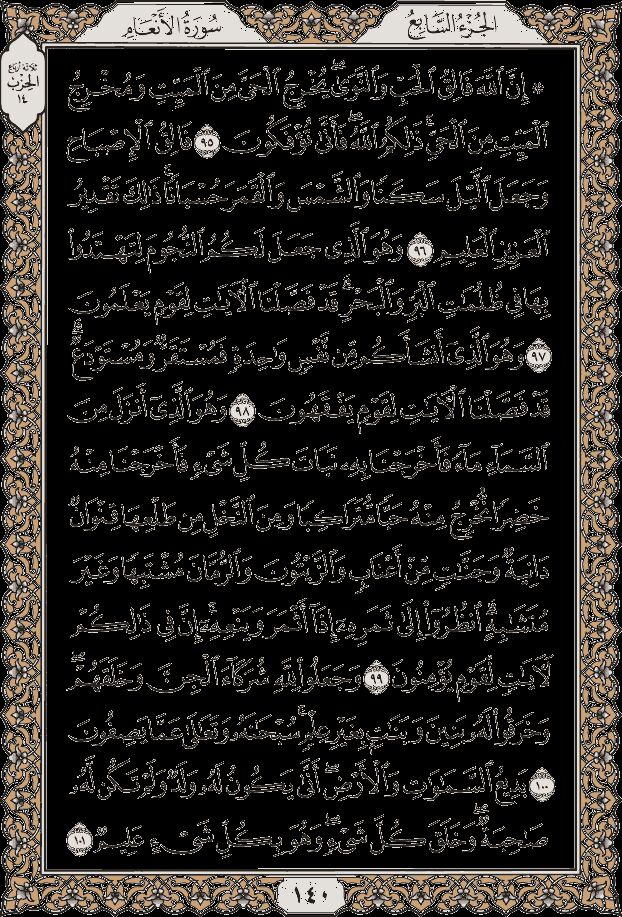 سُورَةُ الأَنْعَامِ
الجُزْءُ السَّابِعُ
ثلاثة أرباع
الحزب
١٤
۞ إِنَّ ٱللَّهَ فَالِقُ ٱلْحَبِّ وَٱلنَّوَىٰۖ يُخْرِجُ ٱلْحَىَّ مِنَ ٱلْمَيِّتِ وَمُخْرِجُ
ٱلْمَيِّتِ مِنَ ٱلْحَىِّۚ ذَٰلِكُمُ ٱللَّهُۖ فَأَنَّىٰ تُؤْفَكُونَ ٩٥ فَالِقُ ٱلْإِصْبَاحِ
وَجَعَلَ ٱلَّيْلَ سَكَنًا وَٱلشَّمْسَ وَٱلْقَمَرَ حُسْبَانًاۚ ذَٰلِكَ تَقْدِيرُ
ٱلْعَزِيزِ ٱلْعَلِيمِ ٩٦ وَهُوَ ٱلَّذِى جَعَلَ لَكُمُ ٱلنُّجُومَ لِتَهْتَدُوا۟
بِهَا فِى ظُلُمَٰتِ ٱلْبَرِّ وَٱلْبَحْرِۗ قَدْ فَصَّلْنَا ٱلْءَايَٰتِ لِقَوْمٍ يَعْلَمُونَ
٩٧ وَهُوَ ٱلَّذِىٓ أَنشَأَكُم مِّن نَّفْسٍ وَٰحِدَةٍ فَمُسْتَقَرٌّ وَمُسْتَوْدَعٌۗ
قَدْ فَصَّلْنَا ٱلْءَايَٰتِ لِقَوْمٍ يَفْقَهُونَ ٩٨ وَهُوَ ٱلَّذِىٓ أَنزَلَ مِنَ
ٱلسَّمَآءِ مَآءً فَأَخْرَجْنَا بِهِۦ نَبَاتَ كُلِّ شَىْءٍ فَأَخْرَجْنَا مِنْهُ
خَضِرًا نُّخْرِجُ مِنْهُ حَبًّا مُّتَرَاكِبًا وَمِنَ ٱلنَّخْلِ مِن طَلْعِهَا قِنْوَانٌ
دَانِيَةٌ وَجَنَّٰتٍ مِّنْ أَعْنَابٍ وَٱلزَّيْتُونَ وَٱلرُّمَّانَ مُشْتَبِهًا وَغَيْرَ
مُتَشَٰبِهٍۗ ٱنظُرُوٓا۟ إِلَىٰ ثَمَرِهِۦٓ إِذَآ أَثْمَرَ وَيَنْعِهِۦٓۚ إِنَّ فِى ذَٰلِكُمْ
لَءَايَٰتٍ لِّقَوْمٍ يُؤْمِنُونَ ٩٩ وَجَعَلُوا۟ لِلَّهِ شُرَكَآءَ ٱلْجِنَّ وَخَلَقَهُمْۖ
وَخَرَقُوا۟ لَهُۥ بَنِينَ وَبَنَٰتٍۭ بِغَيْرِ عِلْمٍۚ سُبْحَٰنَهُۥ وَتَعَٰلَىٰ عَمَّا يَصِفُونَ
١٠٠ بَدِيعُ ٱلسَّمَٰوَٰتِ وَٱلْأَرْضِۖ أَنَّىٰ يَكُونُ لَهُۥ وَلَدٌ وَلَمْ تَكُن لَّهُۥ
صَٰحِبَةٌۖ وَخَلَقَ كُلَّ شَىْءٍۖ وَهُوَ بِكُلِّ شَىْءٍ عَلِيمٌ ١٠١
١٤٠